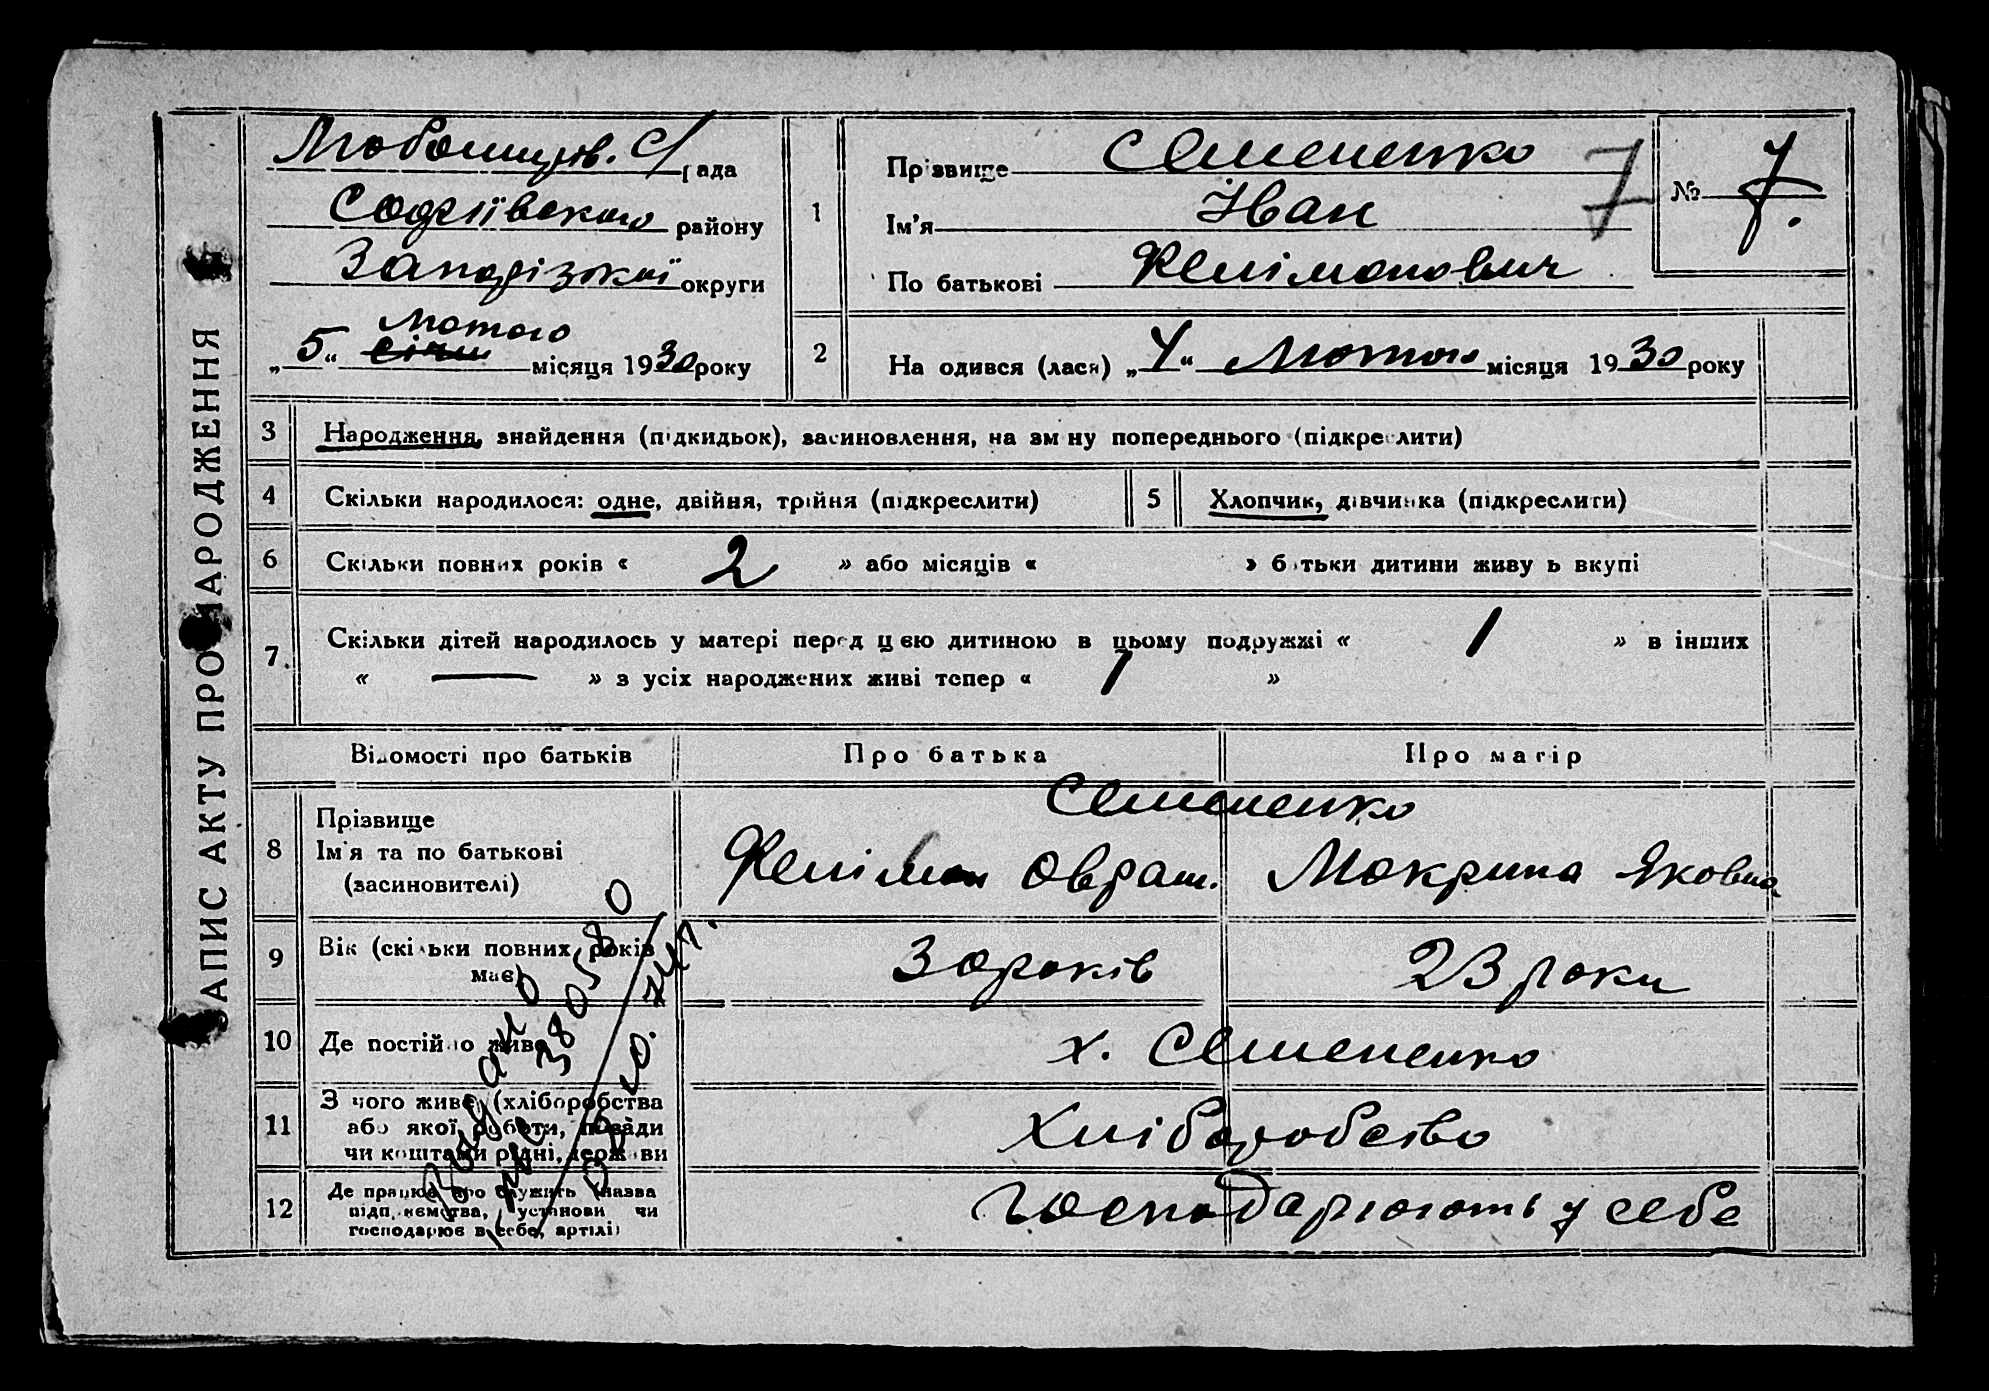 ЗАПИС АКТУ ПРО НАРОДЖЕННЯ
Любомирів. С/рада
Софіївського району
Запорізької округи
„5“ січня лютого місяця 1930 року
1
Прізвище Семененко
Ім'я Іван
По батькові Филімонович
7
№ 7.
2
Народився (лася) „4“ Лютого місяця 1930 року
3 Народження, знайдення (підкидьок), засиновлення, на зміну попереднього (підкреслити)
4 Скільки народилося: одне, двійня, трійня (підкреслити)
5 Хлопчик, дівчинка (підкреслити)
6 Скільки повних років « 2 » або місяців « » батьки дитини живуть вкупі
7. Скільки дітей народилось у матері перед цією дитиною в цьому подружжі « 1 » в інших
« — » з усіх народжених живі тепер « 1 »
Відомості про батьків Про батька Про матір
8 Прізвище
Ім'я та по батькові
(засиновителі)
Семененко
Филімон Оврам. Мокрина Яковна
9 Вік (скільки повних років
має)
30 років 23 роки
10 Де постійно живе
х. Семененко
11 З чого живе (хліборобства
або якої роботи, посади
чи коштами рідні, держави
Хліборобство
12 Де працює або служить (назва
підприємства, установи чи
господарює в себе, артілі)
Господарюють у себе
380580